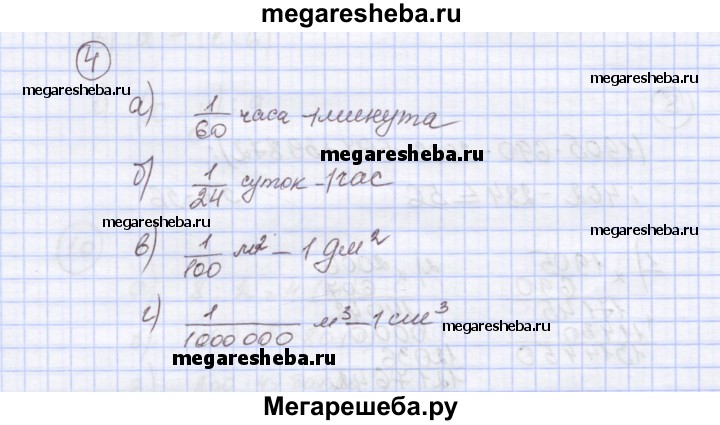 megaresheba.ru
4
megaresheba.ru
megaresheba.ru
а) 1/60 часа - 1 минута
megaresheba.ru
б) 1/24 суток - 1 час
megaresheba.ru
megaresheba.ru
в) 1/100 м² - 1 дм²
г) 1/1000 000 м³ - 1 см³
megaresheba.ru
megaresheba.ru
Мегарешеба.ру